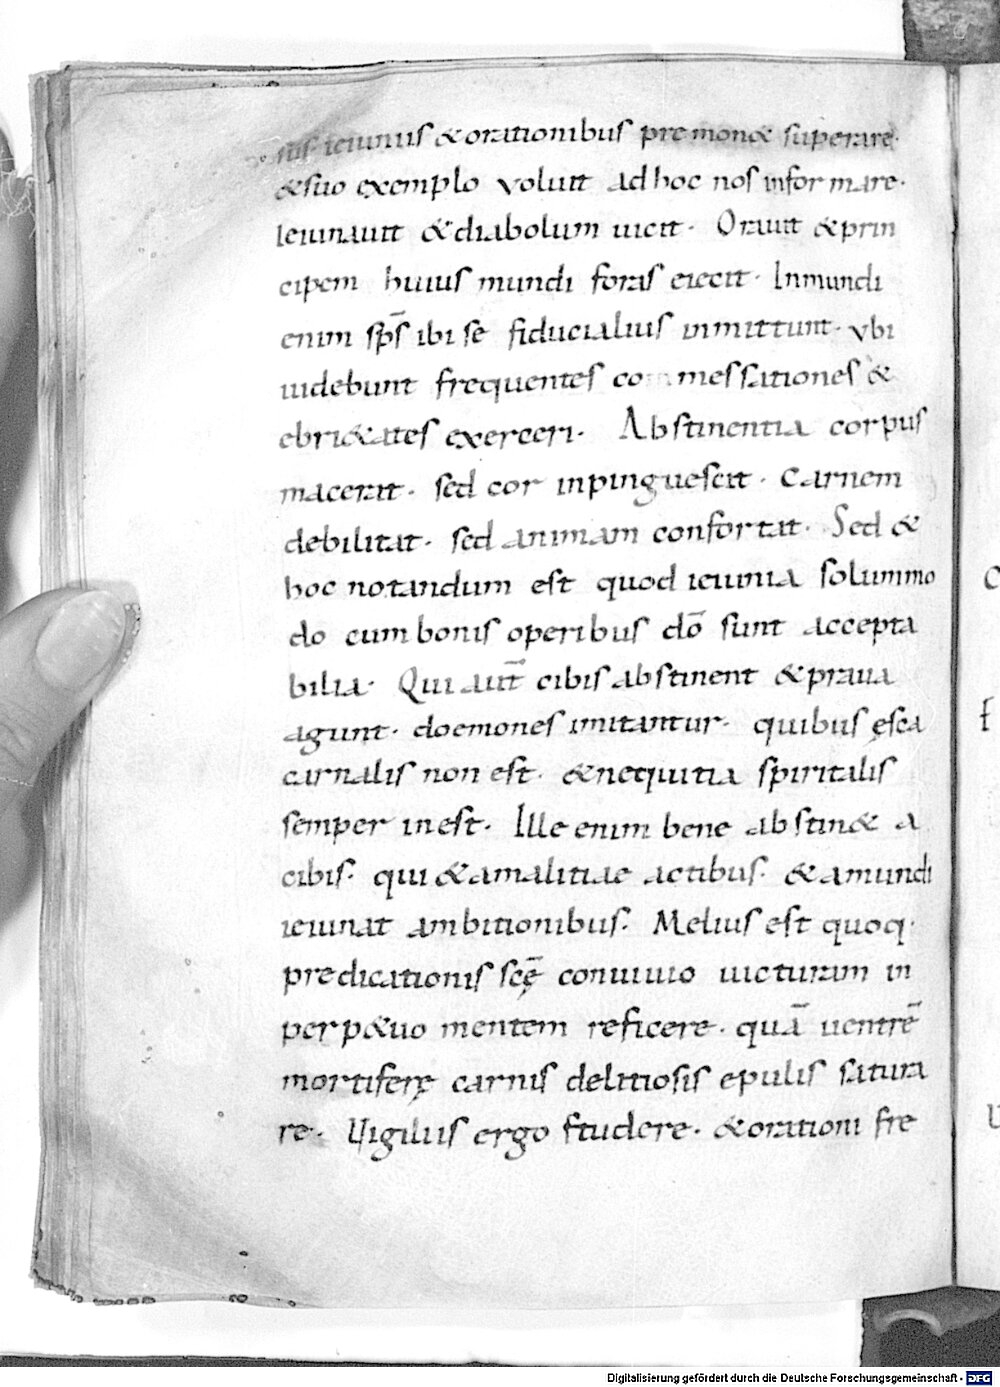 sus ieiuniis & orationibus premon& superare.
& suo exemplo voluit ad hoc nos informare.
Ieiunauit & diabolum uicit. Orauit & prin
cipem huius mundi foras eiecit. Inmundi
enim sp̄s ibi se fiducialius inmittunt. vbi
uidebunt frequentes commessationes &
ebri&ates exerceri. Abstinentia corpus
macerat. sed cor inpinguescit. Carnem
debilitat. sed animam confortat. Sed &
hoc notandum est quod ieiunia solummo
do cum bonis operibus dō sunt accepta
bilia. Qui aut̄ cibis abstinent & praua
agunt. doemones imitantur. quibus ęsca
carnalis non est. & nequitia spiritalis
semper inest. Ille enim bene abstin& a
cibis. qui & a malitiae actibus. & a mundi
ieiunat ambitionibus. Melius est quoq.
predicationis scę̄ conuiuio uicturam in
perp&uo mentem reficere. quā uentrē
mortiferę carnis delitiosis epulis satura
re. Uigiliis ergo studere. & orationi fre
Digitalisierung gefördert durch die Deutsche Forschungsgemeinschaft - DFG